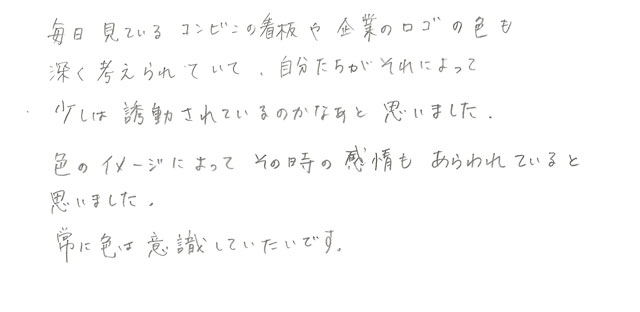 毎日見ているコンビニの看板や企業のロゴの色も
深く考えられていて、自分たちがそれによって
少しは誘動されているのかなぁと思いました。
色のイメージによってその時の感情もあらわれていると
思いました。
常に色は意識していたいです。